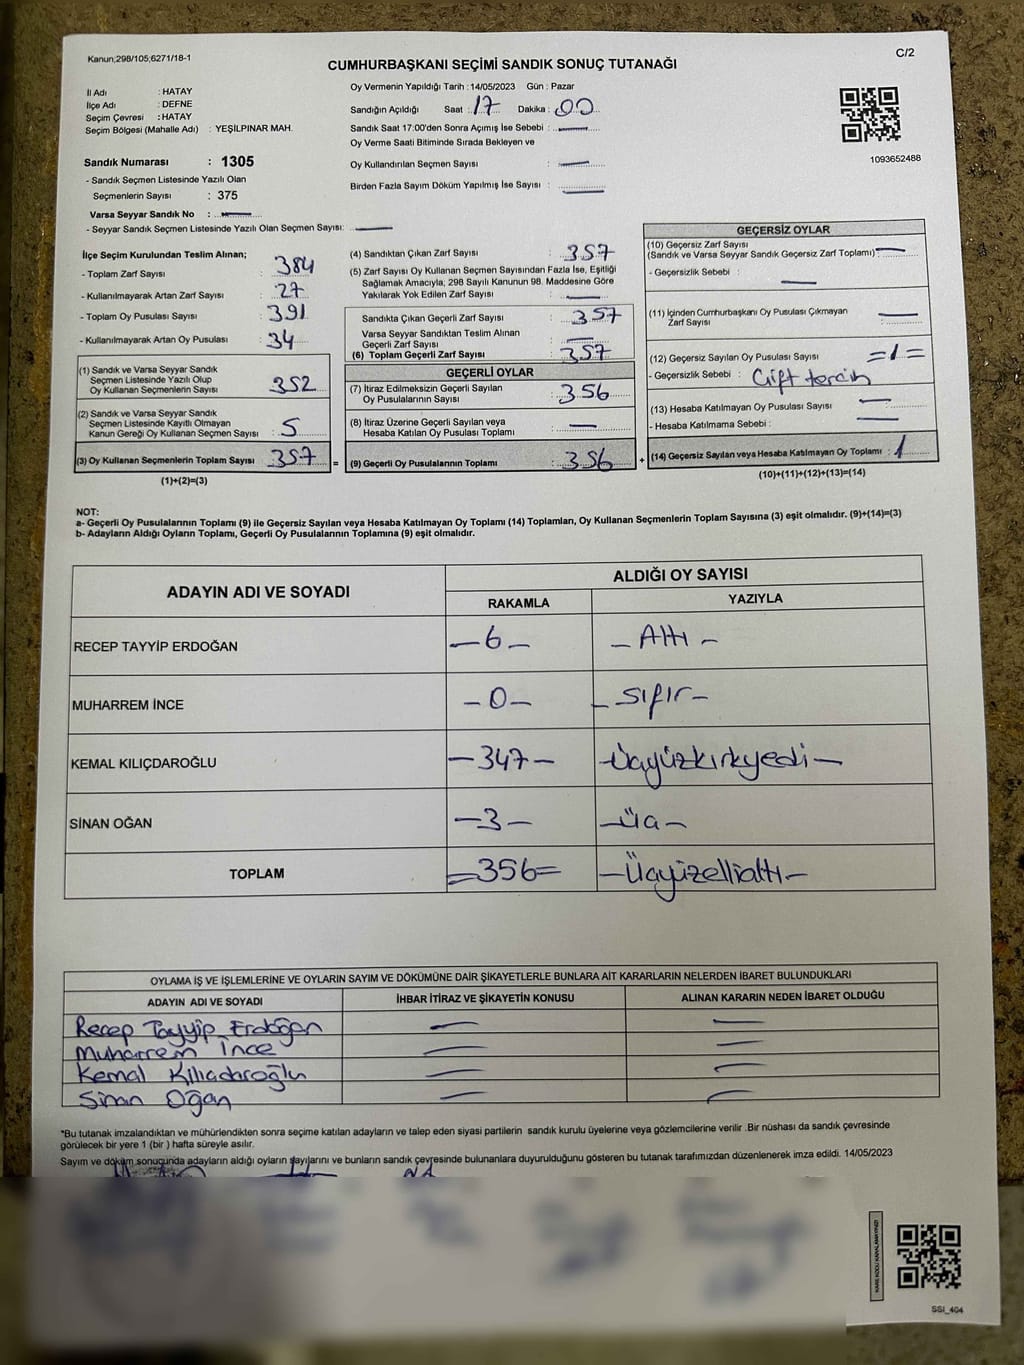 Kanun;298/105;6271/18-1
C/2
CUMHURBAŞKANI SEÇİMİ SANDIK SONUÇ TUTANAĞI
İl Adı : HATAY
İlçe Adı : DEFNE
Seçim Çevresi : HATAY
Seçim Bölgesi (Mahalle Adı) : YEŞİLPINAR MAH.
Sandık Numarası : 1305
- Sandık Seçmen Listesinde Yazılı Olan
Seçmenlerin Sayısı : 375
Varsa Seyyar Sandık No :
- Seyyar Sandık Seçmen Listesinde Yazılı Olan Seçmen Sayısı:
Oy Vermenin Yapıldığı Tarih : 14/05/2023 Gün : Pazar
Sandığın Açıldığı Saat : 17 Dakika : 00
Sandık Saat 17:00'den Sonra Açımış İse Sebebi :
Oy Verme Saati Bitiminde Sırada Bekleyen ve
Oy Kullandırılan Seçmen Sayısı :
Birden Fazla Sayım Döküm Yapılmış İse Sayısı :
1093652488
İlçe Seçim Kurulundan Teslim Alınan;
- Toplam Zarf Sayısı : 384
- Kullanılmayarak Artan Zarf Sayısı : 27
- Toplam Oy Pusulası Sayısı : 391
- Kullanılmayarak Artan Oy Pusulası : 34
(1) Sandık ve Varsa Seyyar Sandık
Seçmen Listesinde Yazılı Olup
Oy Kullanan Seçmenlerin Sayısı : 352
(2) Sandık ve Varsa Seyyar Sandık
Seçmen Listesinde Kayıtlı Olmayan
Kanun Gereği Oy Kullanan Seçmen Sayısı : 5
(3) Oy Kullanan Seçmenlerin Toplam Sayısı : 357 =
(1)+(2)=(3)
(4) Sandıktan Çıkan Zarf Sayısı : 357
(5) Zarf Sayısı Oy Kullanan Seçmen Sayısından Fazla İse, Eşitliği
Sağlamak Amacıyla; 298 Sayılı Kanunun 98. Maddesine Göre
Yakılarak Yok Edilen Zarf Sayısı :
Sandıkta Çıkan Geçerli Zarf Sayısı : 357
Varsa Seyyar Sandıktan Teslim Alınan
Geçerli Zarf Sayısı :
(6) Toplam Geçerli Zarf Sayısı : 357
GEÇERLİ OYLAR
(7) İtiraz Edilmeksizin Geçerli Sayılan
Oy Pusulasının Sayısı : 356
(8) İtiraz Üzerine Geçerli Sayılan veya
Hesaba Katılan Oy Pusulası Toplamı :
(9) Geçerli Oy Pusulalarının Toplamı : 356 +
GEÇERSİZ OYLAR
(10) Geçersiz Zarf Sayısı
(Sandık ve Varsa Seyyar Sandık Geçersiz Zarf Toplamı) :
- Geçersizlik Sebebi :
(11) İçinden Cumhurbaşkanı Oy Pusulası Çıkmayan
Zarf Sayısı :
(12) Geçersiz Sayılan Oy Pusulası Sayısı : =1=
- Geçersizlik Sebebi : Çift tercih
(13) Hesaba Katılmayan Oy Pusulası Sayısı :
- Hesaba Katılmama Sebebi :
(14) Geçersiz Sayılan veya Hesaba Katılmayan Oy Toplamı : 1
(10)+(11)+(12)+(13)=(14)
NOT:
a- Geçerli Oy Pusulalarının Toplamı (9) ile Geçersiz Sayılan veya Hesaba Katılmayan Oy Toplamı (14) Toplamları, Oy Kullanan Seçmenlerin Toplam Sayısına (3) eşit olmalıdır. (9)+(14)=(3)
b- Adayların Aldığı Oyların Toplamı, Geçerli Oy Pusulalarının Toplamına (9) eşit olmalıdır.
ADAYIN ADI VE SOYADI ALDIĞI OY SAYISI
RAKAMLA YAZIYLA
RECEP TAYYİP ERDOĞAN -6- - Altı -
MUHARREM İNCE -0- - sıfır -
KEMAL KILIÇDAROĞLU -347- -Üçyüzkırkyedi-
SİNAN OĞAN -3- -Üç-
TOPLAM =356= -Üçyüzellialtı-
OYLAMA İŞ VE İŞLEMLERİNE VE OYLARIN SAYIM VE DÖKÜMÜNE DAİR ŞİKAYETLERLE BUNLARA AİT KARARLARIN NELERDEN İBARET BULUNDUKLARI
ADAYIN ADI VE SOYADI İHBAR İTİRAZ VE ŞİKAYETİN KONUSU ALINAN KARARIN NEDEN İBARET OLDUĞU
Recep Tayyip Erdoğan
Muharrem İnce
Kemal Kılıçdaroğlu
Sinan Oğan
*Bu tutanak imzalandıktan ve mühürlendikten sonra seçime katılan adayların ve talep eden siyasi partilerin sandık kurulu üyelerine veya gözlemcilerine verilir .Bir nüshası da sandık çevresinde
görülecek bir yere 1 (bir ) hafta süreyle asılır.
Sayım ve döküm sonucunda adayların aldığı oyların sayılarını ve bunların sandık çevresinde bulunanlara duyurulduğunu gösteren bu tutanak tarafımızdan düzenlenerek imza edildi. 14/05/2023
SSİ_404